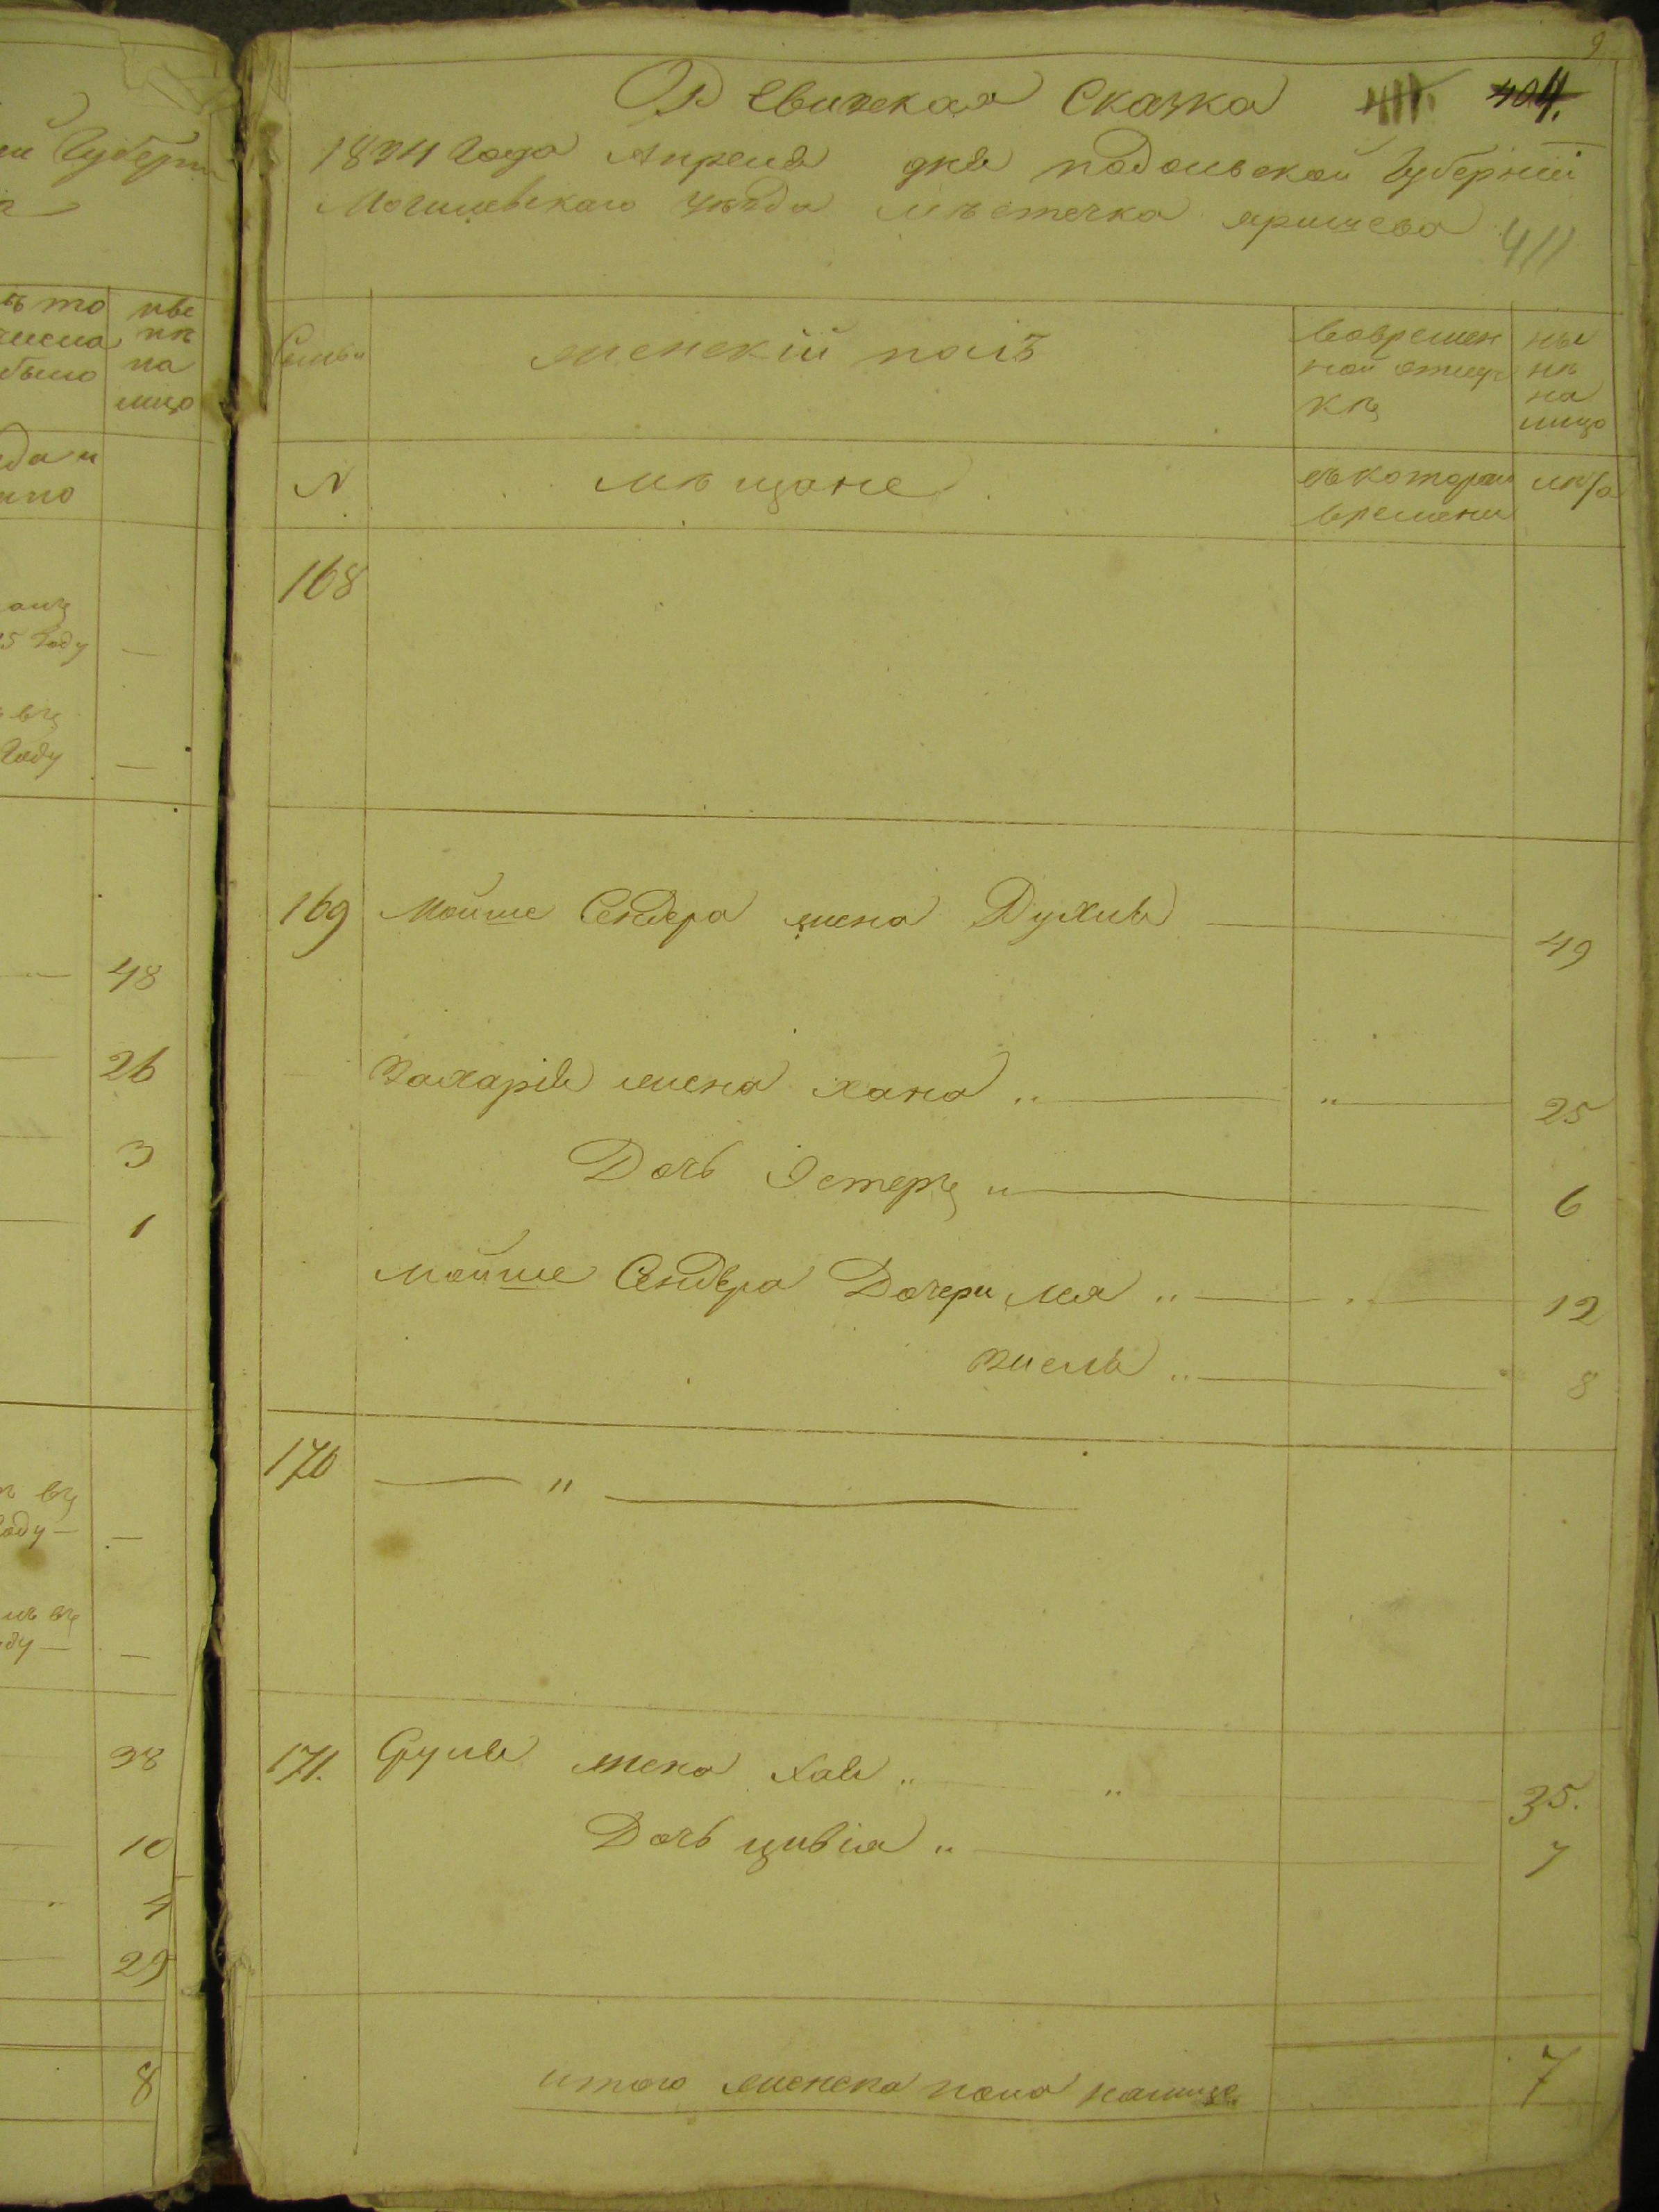 9
Ревизская Сказка 404.
1834 Года Апреля дня подольской Губерніи
Могилевскаго уѣзда мѣстечка яришева 411
Семьи
женскій полъ
вовремен
ной отлуч
кѣ
ны
нѣ
на
лицо
N
мѣщане
съ котораго
времени
лѣта
168
169 Мойше Сендера жена Духля 49
Захарія жена хана 25
Дочь Эстеръ 6
Мойше Сендера Дочери Лея 12
8
170 — " —
171. Сруля жена Хая 35.
Дочь цивія 7
итого женска пола налицо 7
губерніи
то
числа
было
ны
нѣ
на
лицо
Году
Году
48
26
3
1
въ
Году
въ
38
10
4
29
8